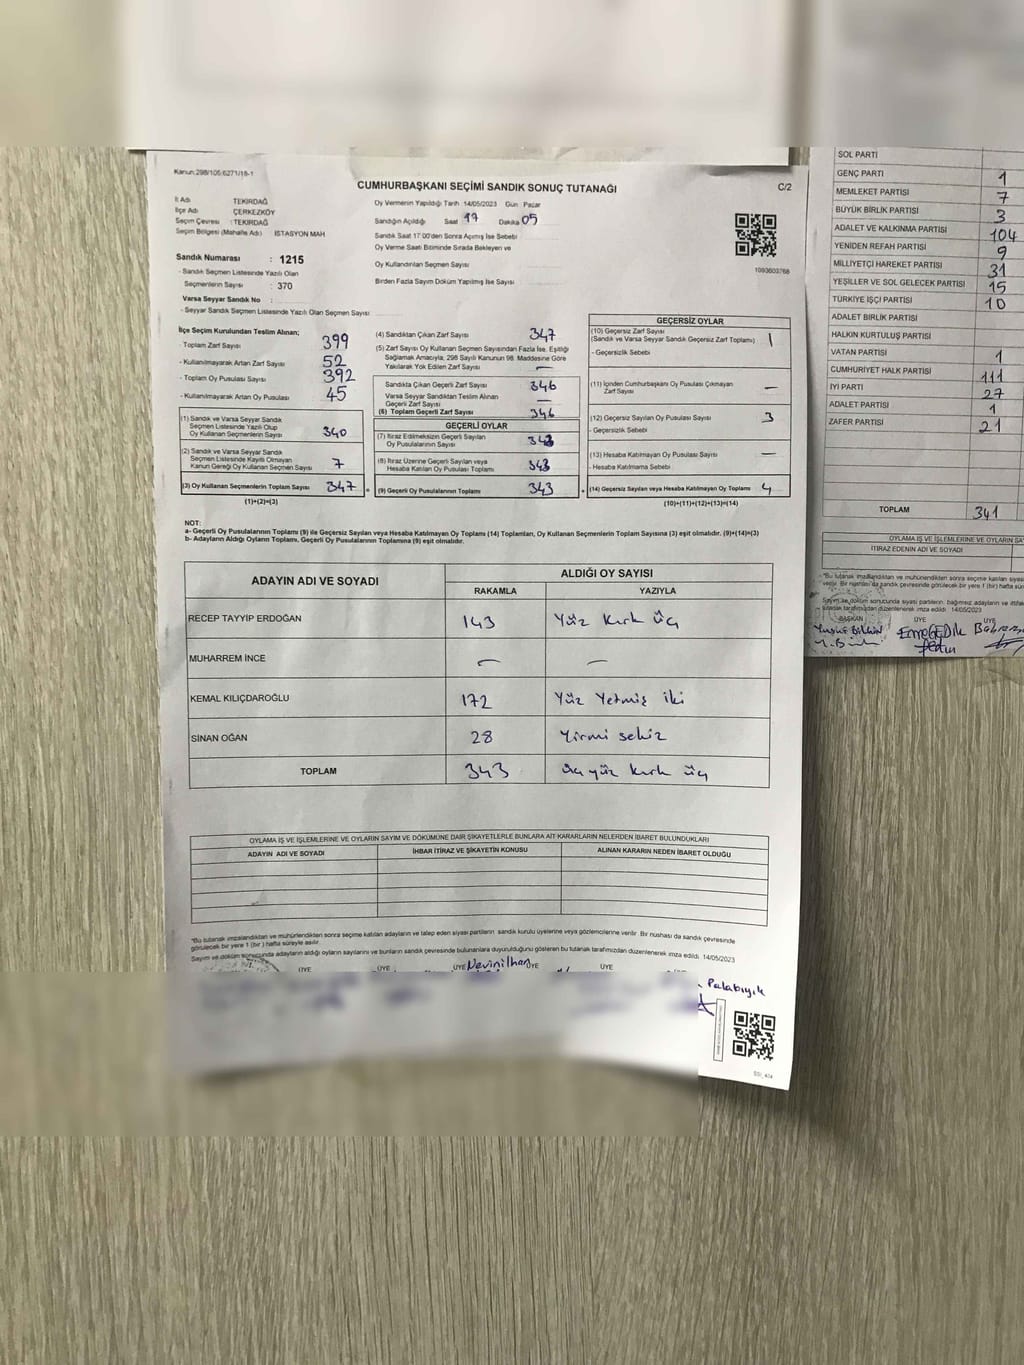 Kanun:298/105;6271/18-1
CUMHURBAŞKANI SEÇİMİ SANDIK SONUÇ TUTANAĞI
C/2
İl Adı TEKİRDAĞ
İlçe Adı ÇERKEZKÖY
Seçim Çevresi :TEKİRDAĞ
Seçim Bölgesi (Mahalle Adı) İSTASYON MAH
Oy Vermenin Yapıldığı Tarih 14/05/2023 Gün Pazar
Sandığın Açıldığı Saat 17 Dakika 05
Sandık Saat 17:00'den Sonra Açılmış İse Sebebi
Oy Verme Saati Bitiminde Sırada Bekleyen ve
Oy Kullandırılan Seçmen Sayısı
Birden Fazla Sayım Döküm Yapılmış İse Sayısı
1093603768
Sandık Numarası : 1215
- Sandık Seçmen Listesinde Yazılı Olan
Seçmenlerin Sayısı : 370
Varsa Seyyar Sandık No :
- Seyyar Sandık Seçmen Listesinde Yazılı Olan Seçmen Sayısı
İlçe Seçim Kurulundan Teslim Alınan;
- Toplam Zarf Sayısı 399
- Kullanılmayarak Artan Zarf Sayısı 52
- Toplam Oy Pusulası Sayısı 392
- Kullanılmayarak Artan Oy Pusulası 45
(1) Sandık ve Varsa Seyyar Sandık
Seçmen Listesinde Yazılı Olup
Oy Kullanan Seçmenlerin Sayısı 340
(2) Sandık ve Varsa Seyyar Sandık
Seçmen Listesinde Kayıtlı Olmayan
Kanun Gereği Oy Kullanan Seçmen Sayısı 7
(3) Oy Kullanan Seçmenlerin Toplam Sayısı 347
(1)+(2)=(3)
(4) Sandıktan Çıkan Zarf Sayısı 347
(5) Zarf Sayısı Oy Kullanan Seçmen Sayısından Fazla İse, Eşitliği
Sağlamak Amacıyla, 298 Sayılı Kanunun 98. Maddesine Göre
Yakılarak Yok Edilen Zarf Sayısı —
Sandıkta Çıkan Geçerli Zarf Sayısı 346
Varsa Seyyar Sandıktan Teslim Alınan
Geçerli Zarf Sayısı —
(6) Toplam Geçerli Zarf Sayısı 346
GEÇERLİ OYLAR
(7) İtiraz Edilmeksizin Geçerli Sayılan
Oy Pusulalarının Sayısı 343
(8) İtiraz Üzerine Geçerli Sayılan veya
Hesaba Katılan Oy Pusulası Toplamı 343
(9) Geçerli Oy Pusulalarının Toplamı 343
GEÇERSİZ OYLAR
(10) Geçersiz Zarf Sayısı
(Sandık ve Varsa Seyyar Sandık Geçersiz Zarf Toplamı) 1
- Geçersizlik Sebebi
(11) İçinden Cumhurbaşkanı Oy Pusulası Çıkmayan
Zarf Sayısı —
(12) Geçersiz Sayılan Oy Pusulası Sayısı 3
- Geçersizlik Sebebi
(13) Hesaba Katılmayan Oy Pusulası Sayısı —
- Hesaba Katılmama Sebebi
(14) Geçersiz Sayılan veya Hesaba Katılmayan Oy Toplamı 4
(10)+(11)+(12)+(13)=(14)
NOT:
a- Geçerli Oy Pusulalarının Toplamı (9) ile Geçersiz Sayılan veya Hesaba Katılmayan Oy Toplamı (14) Toplamları, Oy Kullanan Seçmenlerin Toplam Sayısına (3) eşit olmalıdır. (9)+(14)=(3)
b- Adayların Aldığı Oyların Toplamı, Geçerli Oy Pusulalarının Toplamına (9) eşit olmalıdır.
ADAYIN ADI VE SOYADI ALDIĞI OY SAYISI
RAKAMLA YAZIYLA
RECEP TAYYİP ERDOĞAN 143 Yüz Kırk Üç
MUHARREM İNCE — —
KEMAL KILIÇDAROĞLU 172 Yüz Yetmiş iki
SİNAN OĞAN 28 Yirmi sekiz
TOPLAM 343 üç yüz kırk üç
OYLAMA İŞ VE İŞLEMLERİNE VE OYLARIN SAYIM VE DÖKÜMÜNE DAİR ŞİKAYETLERLE BUNLARA AİT KARARLARIN NELERDEN İBARET BULUNDUKLARI
ADAYIN ADI VE SOYADI İHBAR İTİRAZ VE ŞİKAYETİN KONUSU ALINAN KARARIN NEDEN İBARET OLDUĞU
*Bu tutanak imzalandıktan ve mühürlendikten sonra seçime katılan adayların ve talep eden siyasi partilerin sandık kurulu üyelerine veya gözlemcilerine verilir. Bir nüshası da sandık çevresinde
görülecek bir yere 1 (bir ) hafta süreyle asılır.
Sayım ve döküm sonucunda adayların aldığı oyların sayılarını ve bunların sandık çevresinde bulunanlara duyurulduğunu gösteren bu tutanak tarafımızdan düzenlenerek imza edildi. 14/05/2023
ÜYE ÜYE ÜYE Nevin ilhan ÜYE ÜYE
Palabıyık
SOL PARTİ
GENÇ PARTİ 1
MEMLEKET PARTİSİ 7
BÜYÜK BİRLİK PARTİSİ 3
ADALET VE KALKINMA PARTİSİ 104
YENİDEN REFAH PARTİSİ 9
MİLLİYETÇİ HAREKET PARTİSİ 31
YEŞİLLER VE SOL GELECEK PARTİSİ 15
TÜRKİYE İŞÇİ PARTİSİ 10
ADALET BİRLİK PARTİSİ
HALKIN KURTULUŞ PARTİSİ
VATAN PARTİSİ 1
CUMHURİYET HALK PARTİSİ 111
İYİ PARTİ 27
ADALET PARTİSİ 1
ZAFER PARTİSİ 21
TOPLAM 341
OYLAMA İŞ VE İŞLEMLERİNE VE OYLARIN SA
İTİRAZ EDENİN ADI VE SOYADI
*Bu tutanak imzalandıktan ve mühürlendikten sonra seçime katılan siyas
verilir. Bir nüshası da sandık çevresinde görülecek bir yere 1 (bir) hafta
Sayım ve döküm sonucunda siyasi partilerin, bağımsız adayların ve ittifa
tutanak tarafımızdan düzenlenerek imza edildi. 14/05/2023
BAŞKAN ÜYE ÜYE